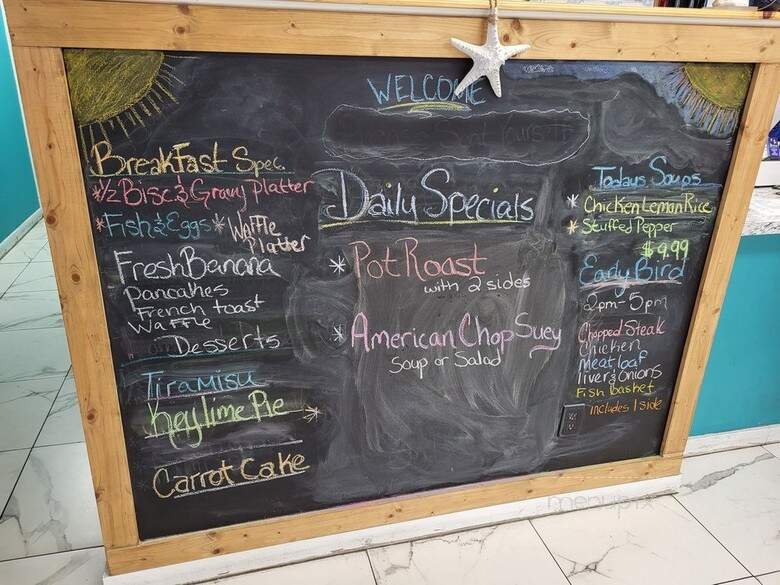 WELCOME
Breakfast Spec.
*1/2 Bisc & Gravy Platter
*Fish & Eggs * Waffle
Platter
Fresh Banana
Pancakes
French toast
Waffle
Desserts
Tiramisu
Key lime Pie *
Carrot Cake
Daily Specials
* Pot Roast
with 2 sides
* American Chop Suey
Soup or Salad
Todays Soups
* Chicken Lemon Rice
* Stuffed Pepper
$9.99
Early Bird
2pm-5pm
Chopped Steak
Chicken
meatloaf
liver & Onions
Fish basket
includes 1 side
menupix